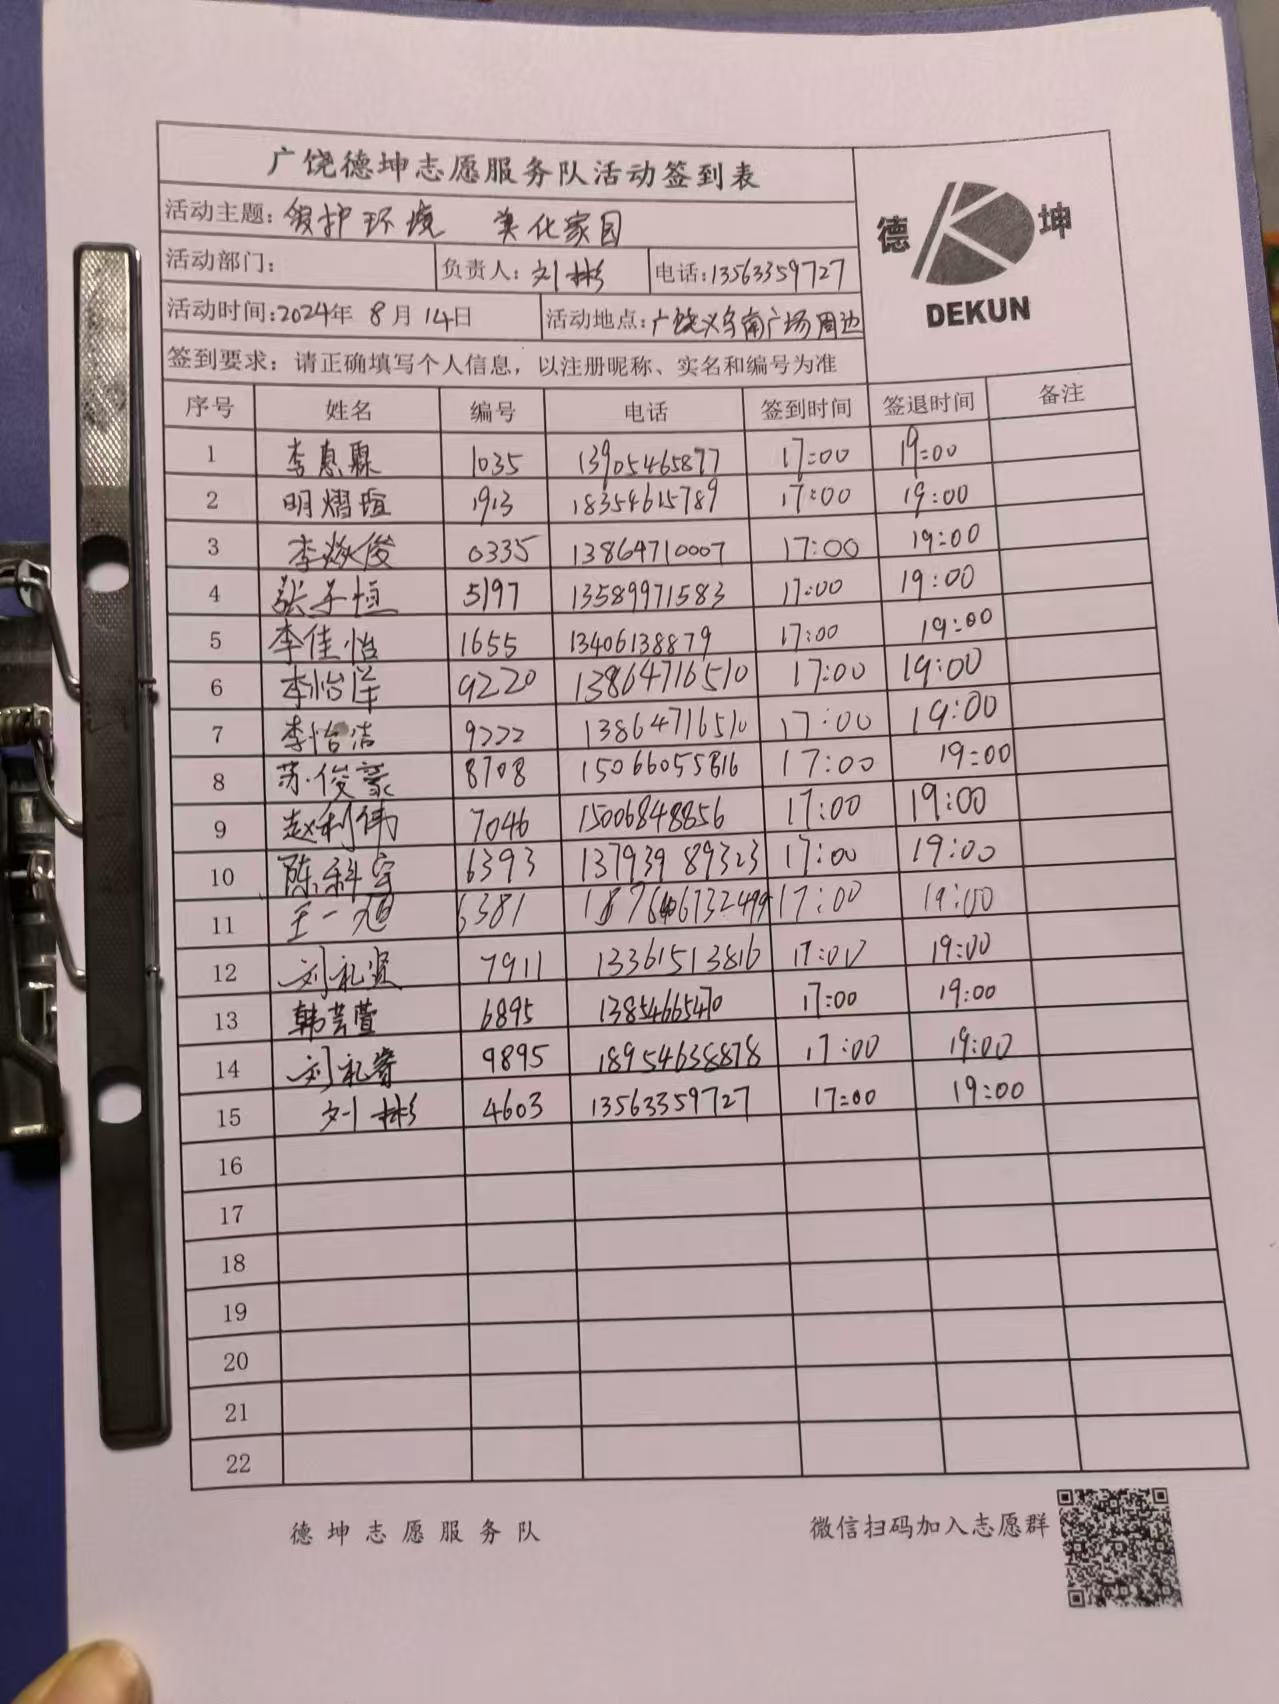 广饶德坤志愿服务队活动签到表
德 坤
DEKUN
活动主题：爱护环境 美化家园
活动部门： 负责人：刘彬 电话：13563359727
活动时间：2024年 8月14日 活动地点：广饶义乌南广场周边
签到要求：请正确填写个人信息，以注册昵称、实名和编号为准
序号 姓名 编号 电话 签到时间 签退时间 备注
1 李惠霖 1035 13905465877 17:00 19:00
2 明熠瑄 1913 18354615789 17:00 19:00
3 李焱俊 0335 13864710007 17:00 19:00
4 张子恒 5197 13589971583 17:00 19:00
5 李佳怡 1655 13406138879 17:00 19:00
6 李怡洋 9220 13864716510 17:00 19:00
7 李怡洁 9222 13864716510 17:00 19:00
8 苏俊豪 8708 15066055816 17:00 19:00
9 赵利伟 7046 15006848856 17:00 19:00
10 陈科宇 6393 13793989323 17:00 19:00
11 王一旭 6381 17:00 19:00
12 刘礼贤 7911 13361513816 17:00 19:00
13 韩芸萱 6895 13854665470 17:00 19:00
14 刘礼睿 9895 18954638878 17:00 19:00
15 刘彬 4603 13563359727 17:00 19:00
16
17
18
19
20
21
22
德坤志愿服务队 微信扫码加入志愿群